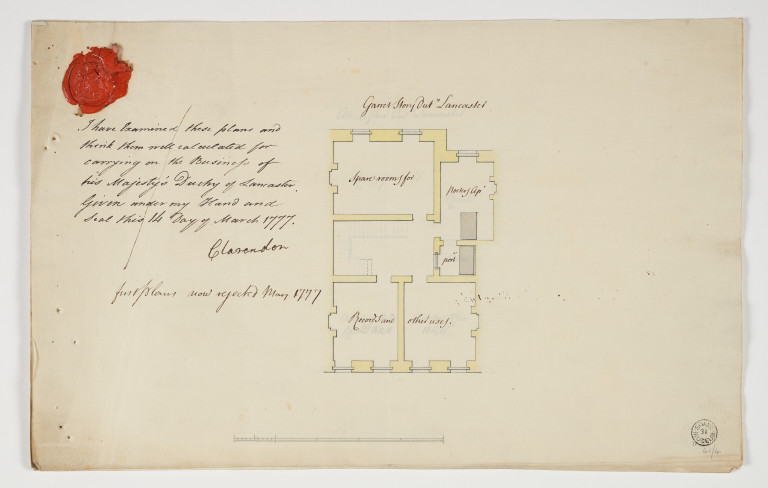 I have Examined these plans and
think them well calculated for
carrying on the Business of
his Majesty's Duchy of Lancaster.
Given under my Hand and
Seal this 14 Day of March 1777.
Clarendon
first plans now rejected May 1777
Garret Story Dut.ʸ Lancaster.
Spare rooms for
Porters Ap.ᵗ
port.ʳ
Records and
other uses.